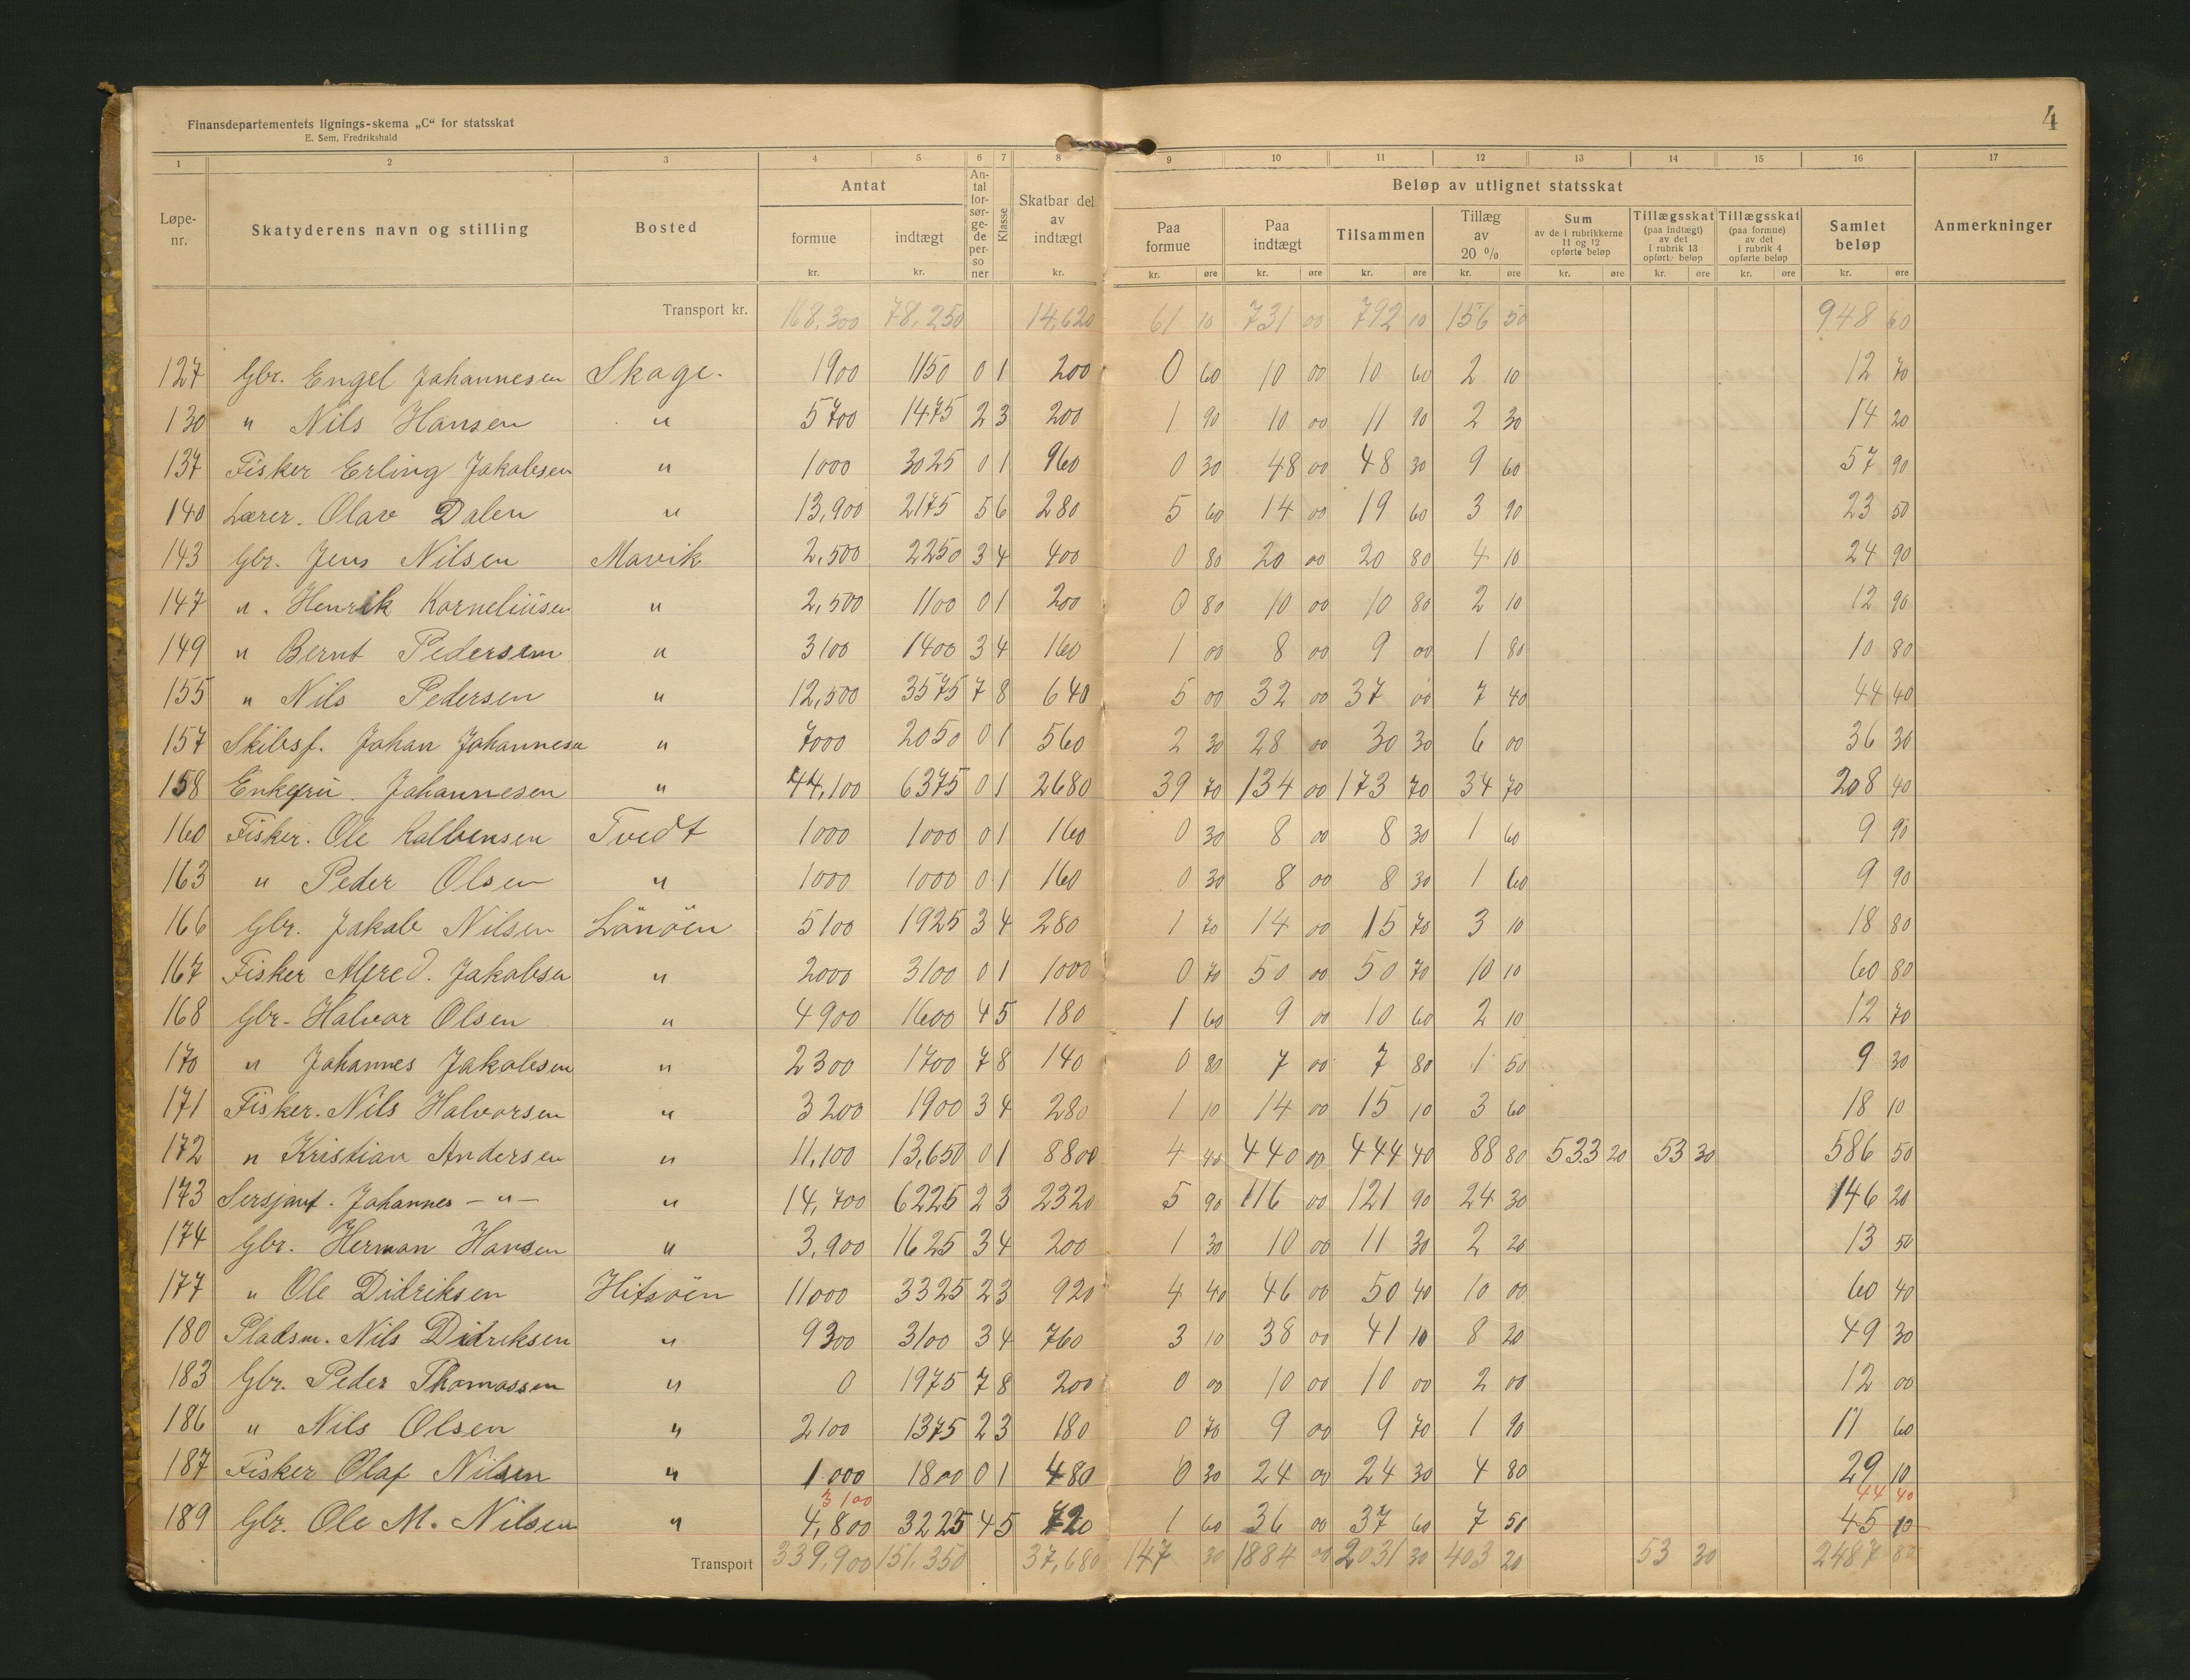 4
Finansdepartementets lignings-skema „C“ for statsskat
E. Sem, Fredrikshald
1 2 3 4 5 6 7 8 9 10 11 12 13 14 15 16 17
Løpe-nr. Skatyderens navn og stilling Bosted Antat formue kr. indtægt kr. Antal forsørgede personer Klasse Skatbar del av indtægt kr. Beløp av utlignet statsskat Paa formue kr. øre Paa indtægt kr. øre Tilsammen kr. øre Tillæg av 20 % kr. øre Sum av de i rubrikkerne 11 og 12 opførte beløp kr. øre Tillægsskat (paa indtægt) av det i rubrik 13 opført beløp kr. øre Tillægsskat (paa formue) av det i rubrik 4 opførte beløp kr. øre Samlet beløp kr. øre Anmerkninger
Transport kr. 168,300 78,250 14,620 61 10 731 00 792 10 156 50 948 60
127 Gbr. Engel Johannesen Skage. 1900 1150 0 1 200 0 60 10 00 10 60 2 10 12 70
130 " Nils Hansen " 5700 1475 2 3 200 1 90 10 00 11 90 2 30 14 20
137 Fisker Erling Jakobsen " 1000 3025 0 1 960 0 30 48 00 48 30 9 60 57 90
140 Lærer. Olav Dalen " 13,900 2175 5 6 280 5 60 14 00 19 60 3 90 23 50
143 Gbr. Jens Nilsen Mavik 2,500 2250 3 4 400 0 80 20 00 20 80 4 10 24 90
147 ". Henrik Korneliusen " 2,500 1100 0 1 200 0 80 10 00 10 80 2 10 12 90
149 " Bernt Pedersen " 3100 1400 3 4 160 1 00 8 00 9 00 1 80 10 80
155 " Nils Pedersen " 12,500 3575 7 8 640 5 00 32 00 37 00 7 40 44 40
157 Skibsf. Johan Johannesen " 7000 2050 0 1 560 2 30 28 00 30 30 6 00 36 30
158 Enkefru. Johannesen " 44,100 6375 0 1 2680 39 70 134 00 173 70 34 70 208 40
160 Fisker. Ole Kolbensen Tvedt 1000 1000 0 1 160 0 30 8 00 8 30 1 60 9 90
163 " Peder Olsen " 1000 1000 0 1 160 0 30 8 00 8 30 1 60 9 90
166 Gbr. Jakob Nilsen Lönöen 5100 1925 3 4 280 1 70 14 00 15 70 3 10 18 80
167 Fisker Alfred. Jakobsen " 2000 3100 0 1 1000 0 70 50 00 50 70 10 10 60 80
168 Gbr- Halvor Olsen " 4900 1600 4 5 180 1 60 9 00 10 60 2 10 12 70
170 " Johannes Jakobsen " 2300 1700 7 8 140 0 80 7 00 7 80 1 50 9 30
171 Fisker. Nils Halvorsen " 3200 1900 3 4 280 1 10 14 00 15 10 3 60 18 10
172 " Kristian Andersen " 11,100 13,650 0 1 8800 4 40 440 00 444 40 88 80 533 20 53 30 586 50
173 Sersjant. Johannes - " - " 14,700 6225 2 3 2320 5 90 116 00 121 90 24 30 146 20
174 Gbr. Herman Hansen " 3,900 1625 3 4 200 1 30 10 00 11 30 2 20 13 50
177 " Ole Didriksen Hitsöen 11000 3325 2 3 920 4 40 46 00 50 40 10 00 60 40
180 Pladsm. Nils Didriksen " 9300 3100 3 4 760 3 10 38 00 41 10 8 20 49 30
183 Gbr. Peder Thomassen " 0 1975 7 8 200 0 00 10 00 10 00 2 00 12 00
186 " Nils Olsen " 2100 1375 2 3 180 0 70 9 00 9 70 1 90 11 60
187 Fisker Olaf Nilsen " 1000 1800 0 1 480 0 30 24 00 24 30 4 80 29 10
3100 44 40
189 Gbr. Ole M. Nilsen " 4,800 3225 4 5 720 1 60 36 00 37 60 7 50 45 10
Transport 339,900 151,350 37,680 147 30 1884 00 2031 30 403 20 53 30 2487 80